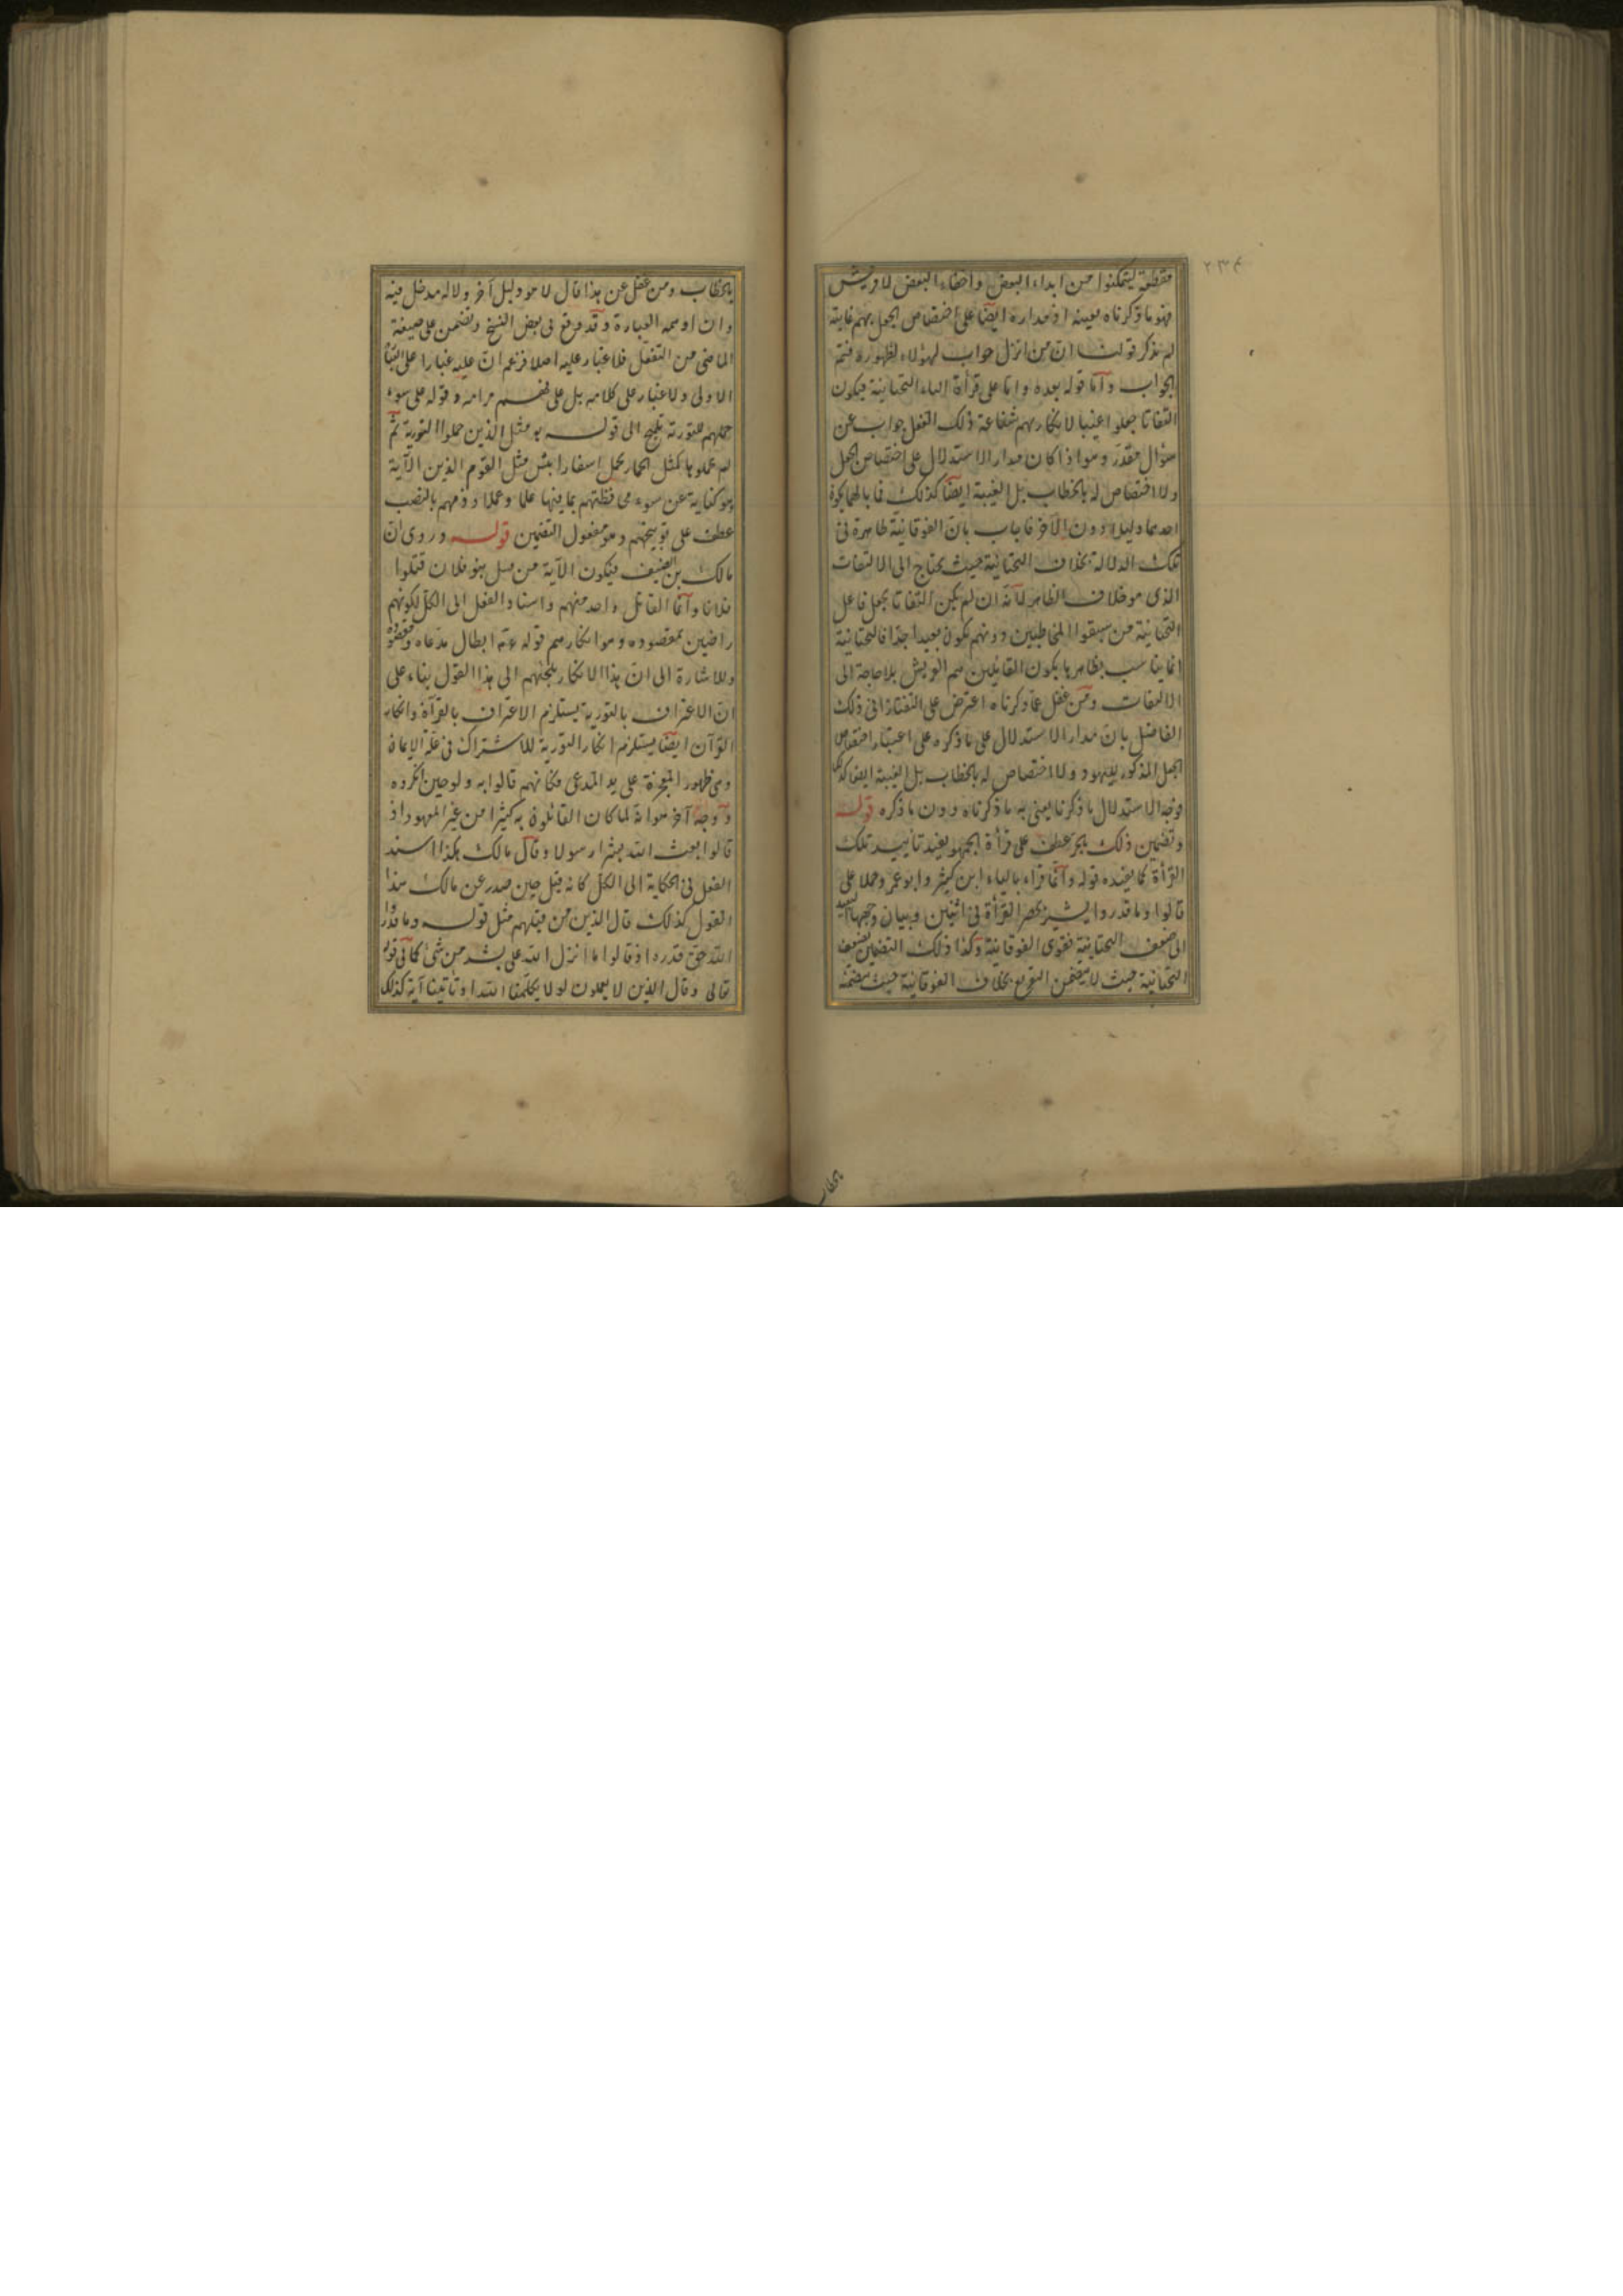 ٢٣٤
مقطعة ليتمكنوا من ابداء البعض واخفاء البعض لا قريش
فهو ما ذكرناه بعينه اذ مداره ايضا على اختصاص الجعل بهم غاية
لم يذكر قولنا ان من انزل جواب لهؤلاء لظهوره فتم
الجواب وأما قوله بعده واما على قرأة الياء التحتانية فيكون
التفاتا جعلوا غيبا لارتكابهم شناعة ذلك الفعل جواب عن
سؤال مقدر وهو اذا كان مدار الاستدلال على اختصاص الجعل
ولا اختصاص له بالخطاب بل الغيبة ايضا كذلك فما بالهما يكون
احدهما دليلا دون الآخر فاجاب بان الفوقانية ظاهرة في
تلك الدلالة بخلاف التحتانية حيث يحتاج الى الالتفات
الذى هو خلاف الظاهر لأنه ان لم يكن التفاتا بجعل فاعل
التحتانية من سبقوا المخاطبين دونهم يكون بعيدا جدا فالتحتانية
انما يناسب بظاهرها بكون القائلين هم القريش بلا حاجة الى
الالتفات ومن غفل عما ذكرناه اعترض على التفتازانى ذلك
الفاضل بان مدار الاستدلال على ما ذكره على اعتبار اختصاص
الجعل المذكور بيهود ولا اختصاص له بالخطاب بل الغيبة ايضا كذلك
فوجه الاستدلال ما ذكرنا يعنى به ما ذكرناه دون ما ذكره قوله
وتضمين ذلك بالجر عطف على قرأة الجمهور يفيد تأييد تلك
القرأة كما يفيده قوله وانما قراء بالياء ابن كثير وابو عمرو حملا على
قالوا وما قدروا يشير بحصر القرأة فى اثنين وبيان وجهها البعيد
الى ضعف التحتانية فقوى الفوقانية وكذا ذلك التضمين يضعف
التحتانية حيث لا يتضمن التقريع بخلاف الفوقانية حيث يتضمنه
بالخطاب
بالخطاب ومن غفل عن هذا قال لا هو دليل آخر ولا له مدخل فيه
وان اوهمه العبارة وقد وقع فى بعض النسخ وتضمن على صيغة
الماضى من التفعل فلا غبار عليه اصلا فزعم ان عليه غبارا على النسخة
الاولى ولا غبار على كلامه بل على فهم مرامه وقوله على سوء
حملهم للتورية تلميح الى قوله تع مثل الذين حملوا التورية ثم
لم يحملوها كمثل الحمار يحمل اسفارا بئس مثل القوم الذين الآية
وهو كناية عن سوء محافظتهم بما فيها علما وعملا وذمهم بالنصب
عطف على توبيخهم وهو مفعول التضمين قوله وروى ان
مالك بن الصيف فيكون الآية من قبيل بنو فلان قتلوا
فلانا وأنما القاتل واحد منهم واسناد الفعل الى الكل لكونهم
راضين بمقصوده وهو انكارهم قوله عم ابطال مدعاه ومقصوده
وللاشارة الى ان هذا الانكار يلجئهم الى هذا القول بناء على
ان الاعتراف بالتورية يستلزم الاعتراف بالقرآن وانكار
القرآن ايضا يستلزم انكار التورية للاشتراك فى علة الايمان
وهى ظهور المعجزة على يد المدعى فكانهم قالوا به ولو حين انكروه
ووجه آخر هو انه لما كان القائلون به كثيرا من غير اليهود اذ
قالوا ابعث الله بشرا رسولا وقال مالك هكذا اسند
الفعل فى الحكاية الى الكل كانه قيل حين صدر عن مالك هذا
القول كذلك قال الذين من قبلهم مثل قوله وما قدروا
الله حق قدره اذ قالوا ما انزل الله على بشر من شئ كما فى قوله
تعالى وقال الذين لا يعلمون لولا يكلمنا الله او تأتينا آية كذلك